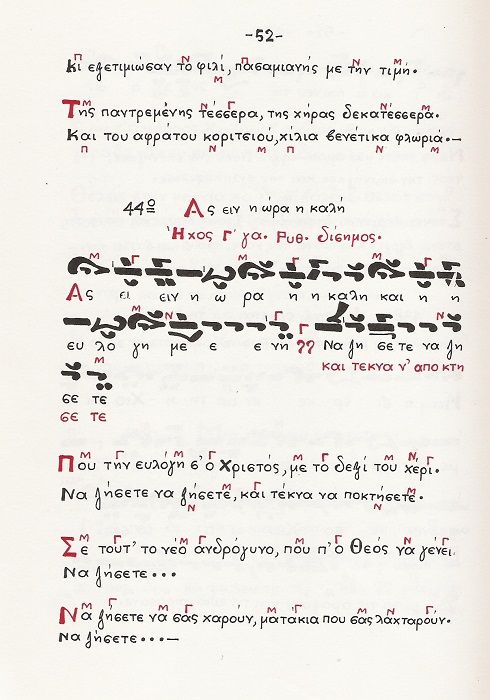 -52-
Κι εξετιμώσαν το φιλί, πασαμιανής με την τιμή.
Της παντρεμένης τέσσερα, της χήρας δεκατέσσερα.
Και του αφράτου κοριτσιού, χίλια βενέτικα φλωριά.-
44ο Ας ειν η ώρα η καλή
Ήχος Γ΄ γα. Ρυθ. δίσημος.
Ας ει ειν η ω ρα η η καλη και η η
ευ λο γη με ε ε νη Να ζη σε τε να ζη
και τεκνα ν' απο κτη
σε τε
σε τε
Που την ευλόγη σ' ο Χριστός, με το δεξί του χέρι.
Να ζήσετε να ζήσετε, και τέκνα να ποκτήσετε.
Σε τουτ' το νέο ανδρόγυνο, που π' ο Θεός να γένει.
Να ζήσετε...
Να ζήσετε να σας χαρούν, ματάκια που σας λάχταρούν.
Να ζήσετε...-